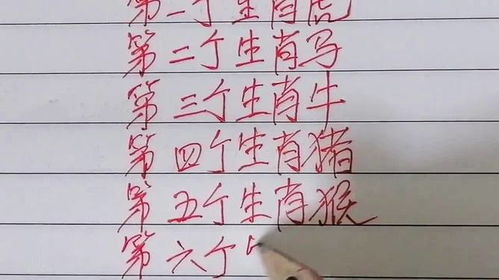 第一个生肖虎
第二个生肖马
第三个生肖牛
第四个生肖猪
第五个生肖猴
第六个